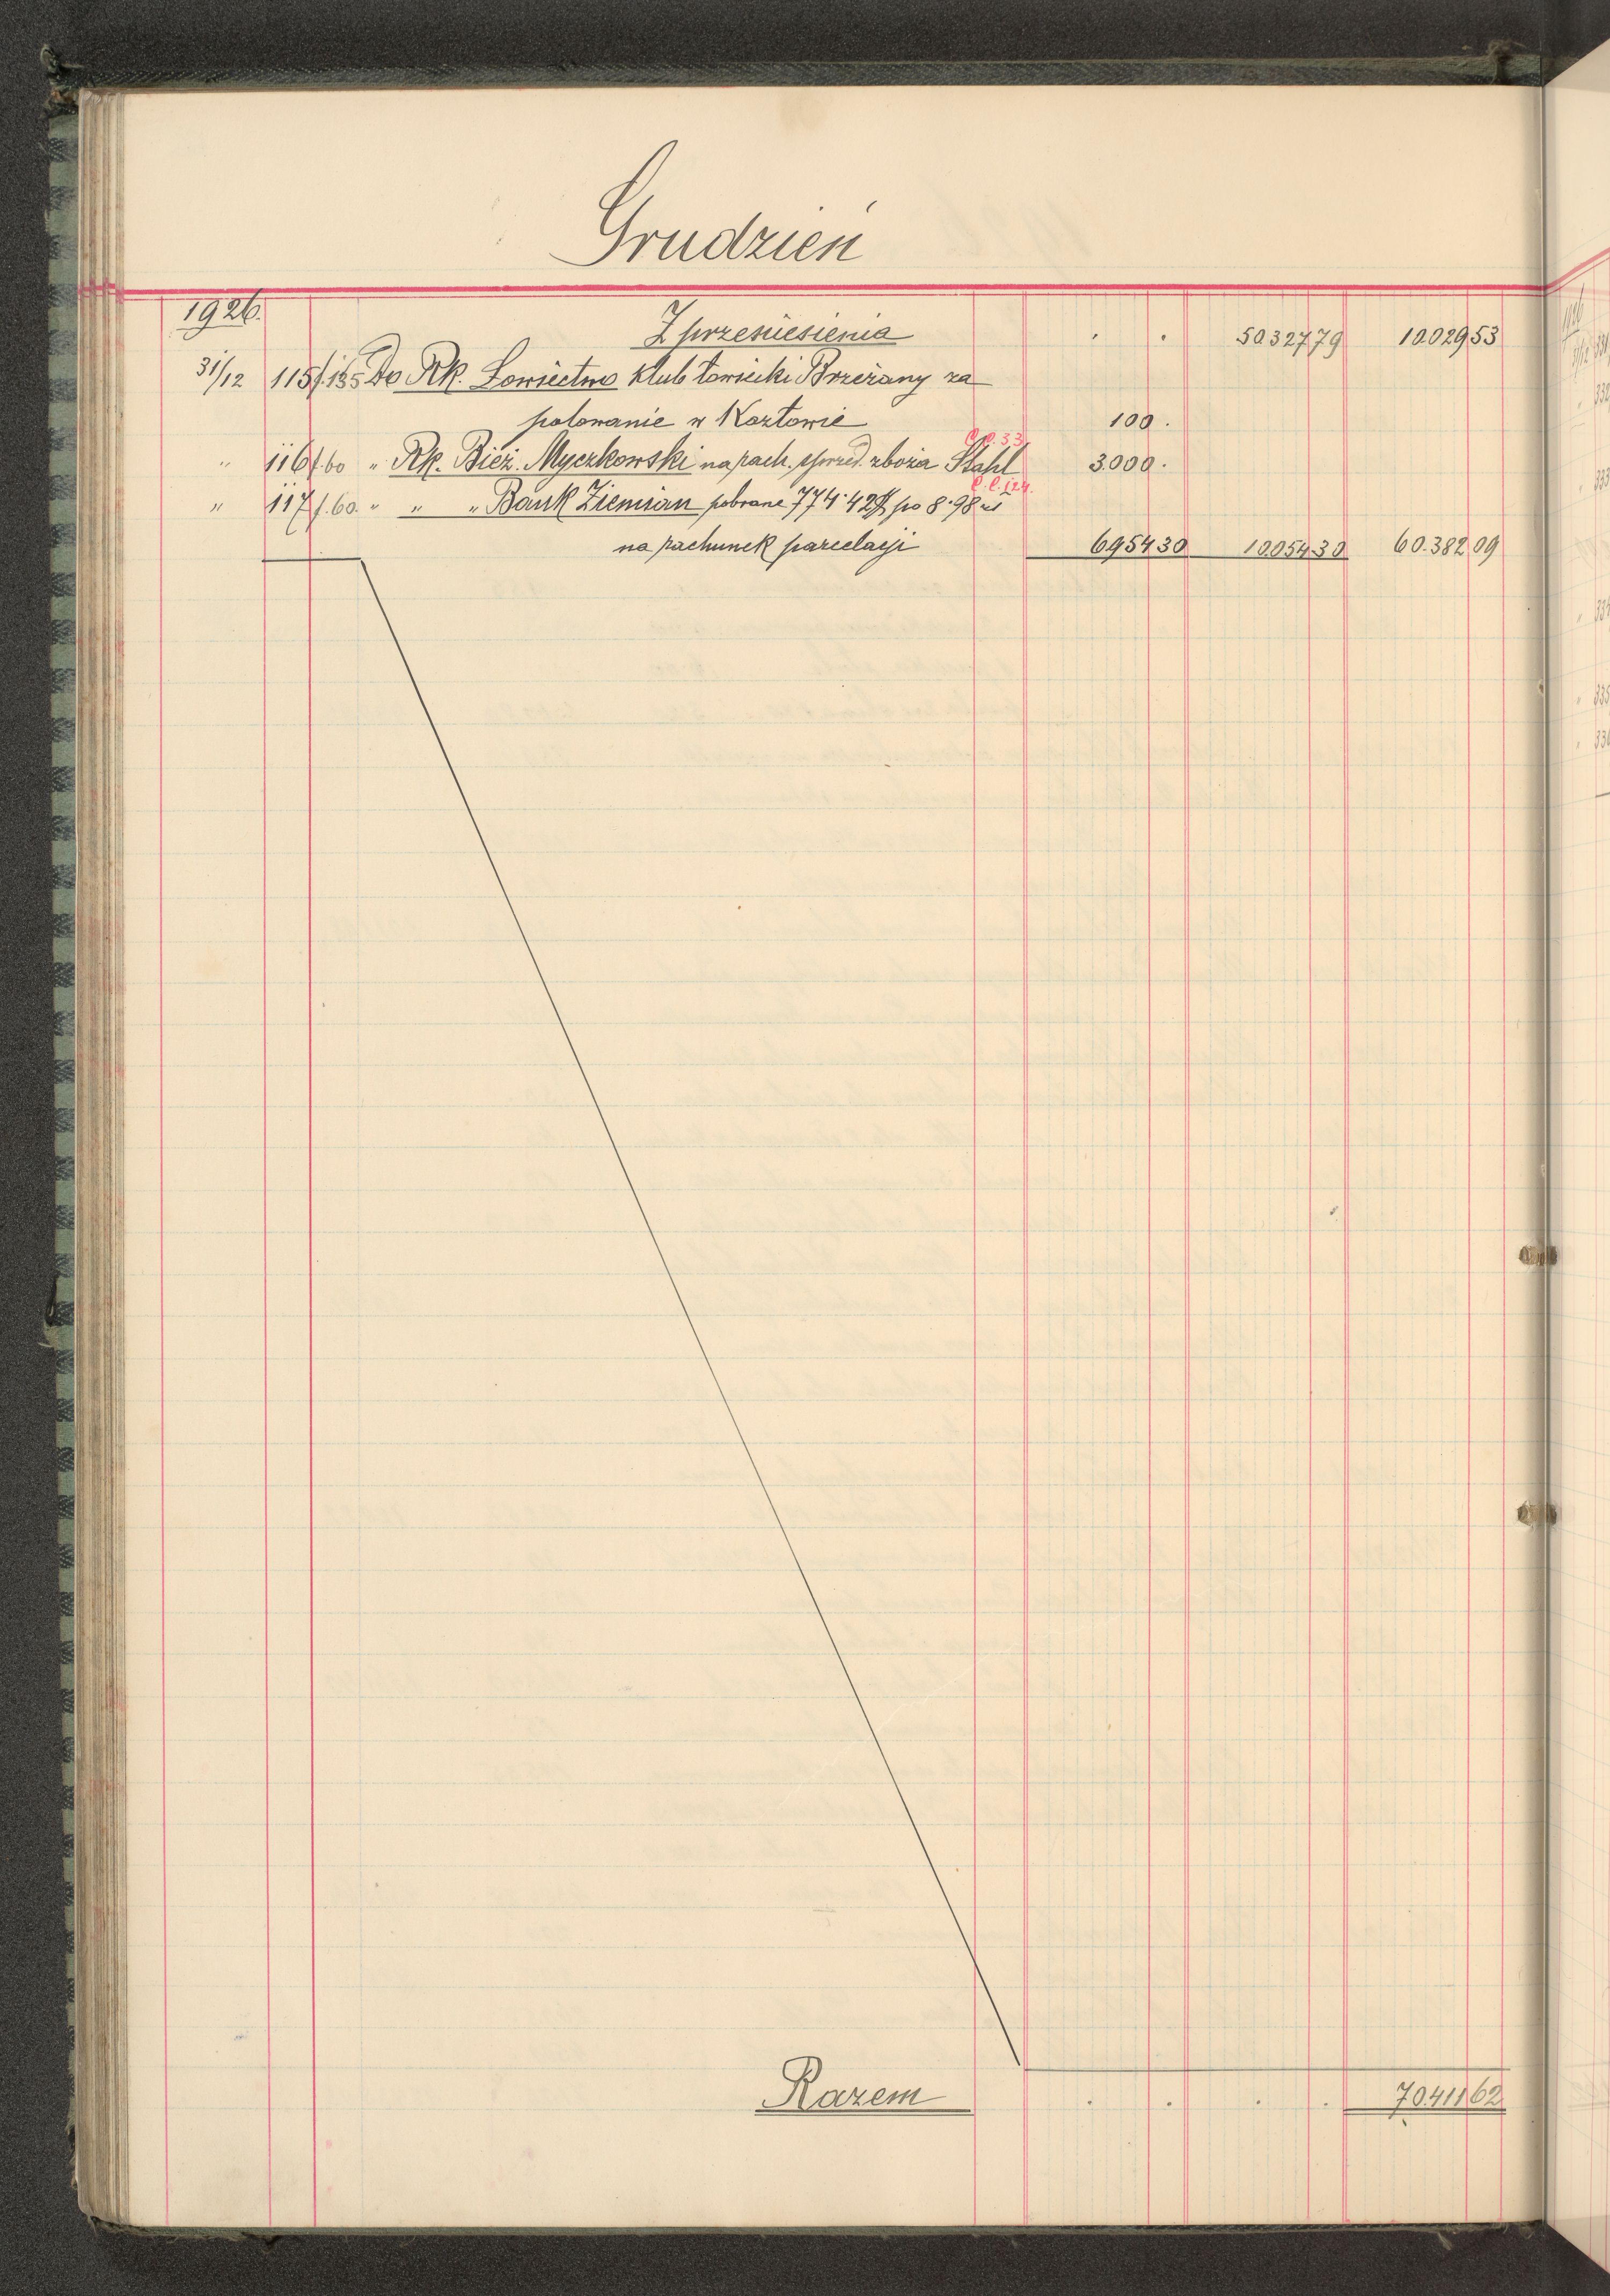 Grudzień
1926.
Z przeniesienia . . 50327 79 10029 53
31/12 115/135 Do Rk. Łowiectwo klub łowiecki Brzeżany za
polowanie w Kozłowie 100 .
C.C. 33
" 116/60 " Rk. Bież. Myczkowski na rach. sprzed. zboża Stahl 3.000 .
C.C. 124.
" 117/60 " " " Bank Ziemian pobrane 774.42 $ po 8.98 zł
na rachunek parcelacji 6954 30 10054 30 60.382 09
Razem . . . . 70411 62